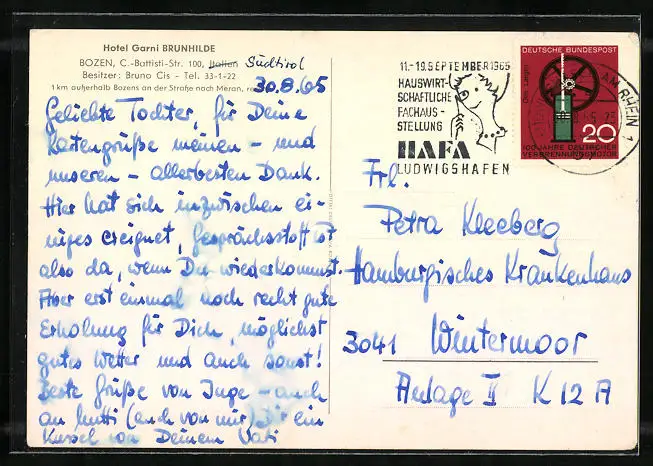 Hotel Garni BRUNHILDE
BOZEN, C.-Battisti-Str. 100, Italien Südtirol
Besitzer: Bruno Cis - Tel. 33-1-22
1 km außerhalb Bozens an der Straße nach Meran,
30.8.65
Geliebte Tochter, für Deine
Kartengrüße meinen - und
unseren - allerbesten Dank.
Hier hat sich inzwischen ei-
niges ereignet, Gesprächsstoff ist
also da, wenn Du wiederkommst.
Aber erst einmal noch recht gute
Erholung für Dich, möglichst
gutes Wetter und auch sonst!
Beste Grüße von Inge - auch
an Mutti (auch von mir) Dir ein
Kussel von Deinem Vati
11.-19.SEPTEMBER 1965
HAUSWIRT-
SCHAFTLICHE
FACHAUS-
STELLUNG
HAFA
LUDWIGSHAFEN
DEUTSCHE BUNDESPOST
20
100 JAHRE DEUTSCHER
VERBRENNUNGSMOTOR
AM RHEIN 1
Frl.
Petra Kleeberg
Hamburgisches Krankenhaus
3041 Wintermoor
Anlage II K 12 A